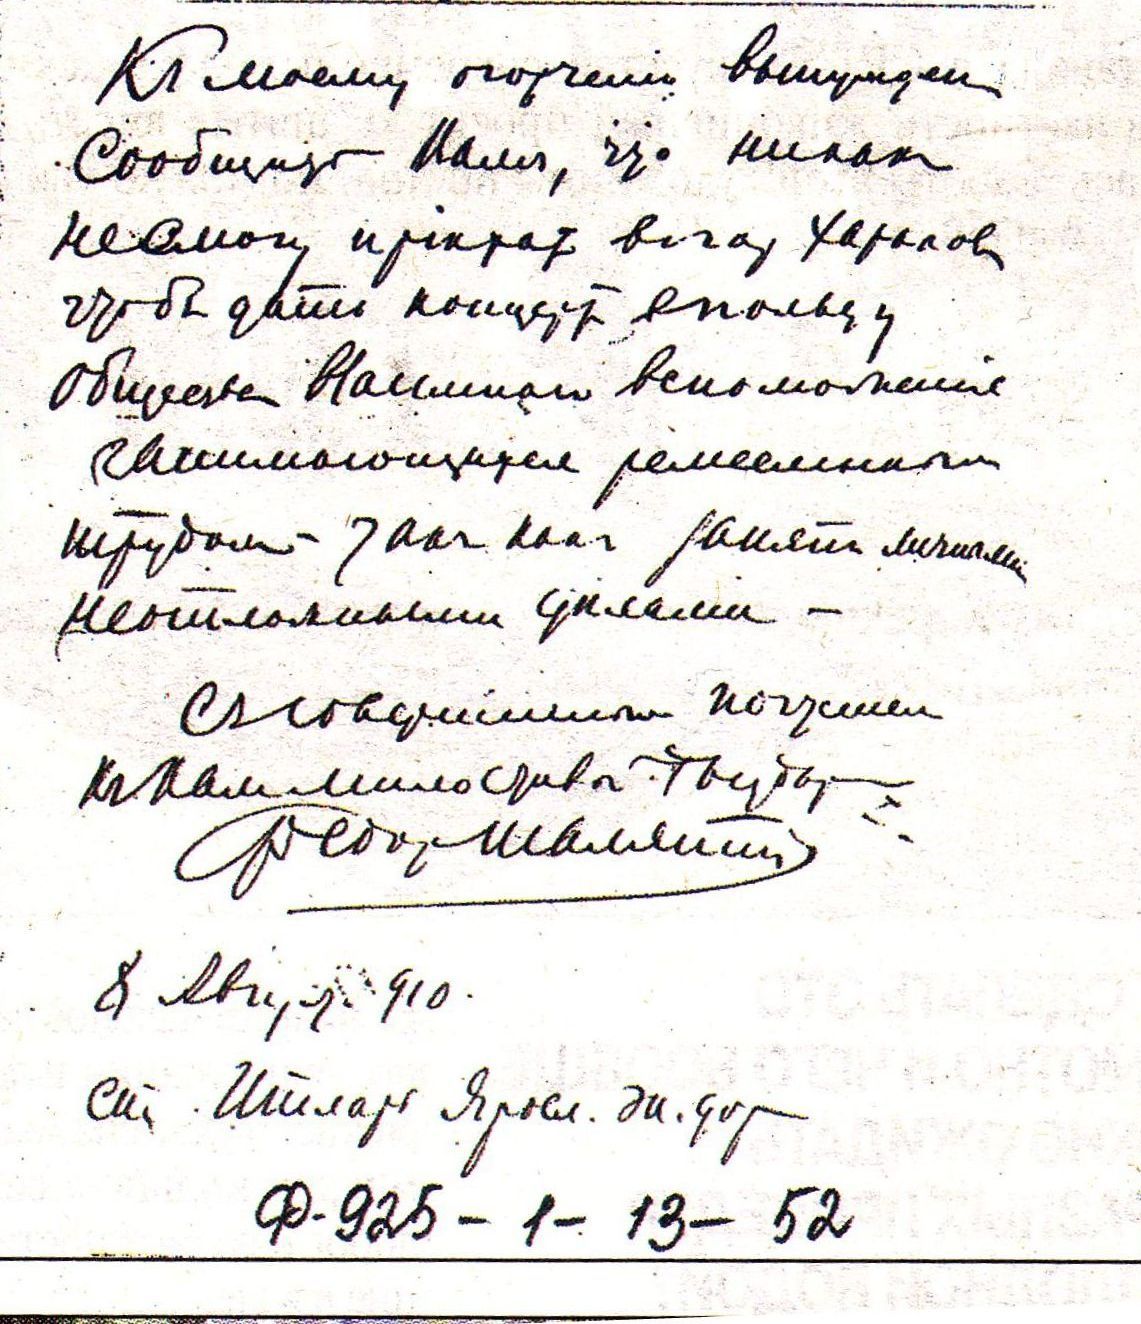 Къ моему огорченію вынужден
сообщить Вамъ, что никакъ
не смогу пріѣхать въ гор Харьковъ
чтобъ дать концертъ въ пользу
Общества Взаимнаго вспоможенія
занимающихся ремесленнымъ
трудомъ – такъ какъ занятъ личными
неотложными дѣлами –
Съ совершеннымъ почтеніем
къ Вам милостивый Государь
Федор Шаляпинъ
8 Августа 910.
ст. Итларь Яросл. Ж. дор
Ф-925-1-13-52